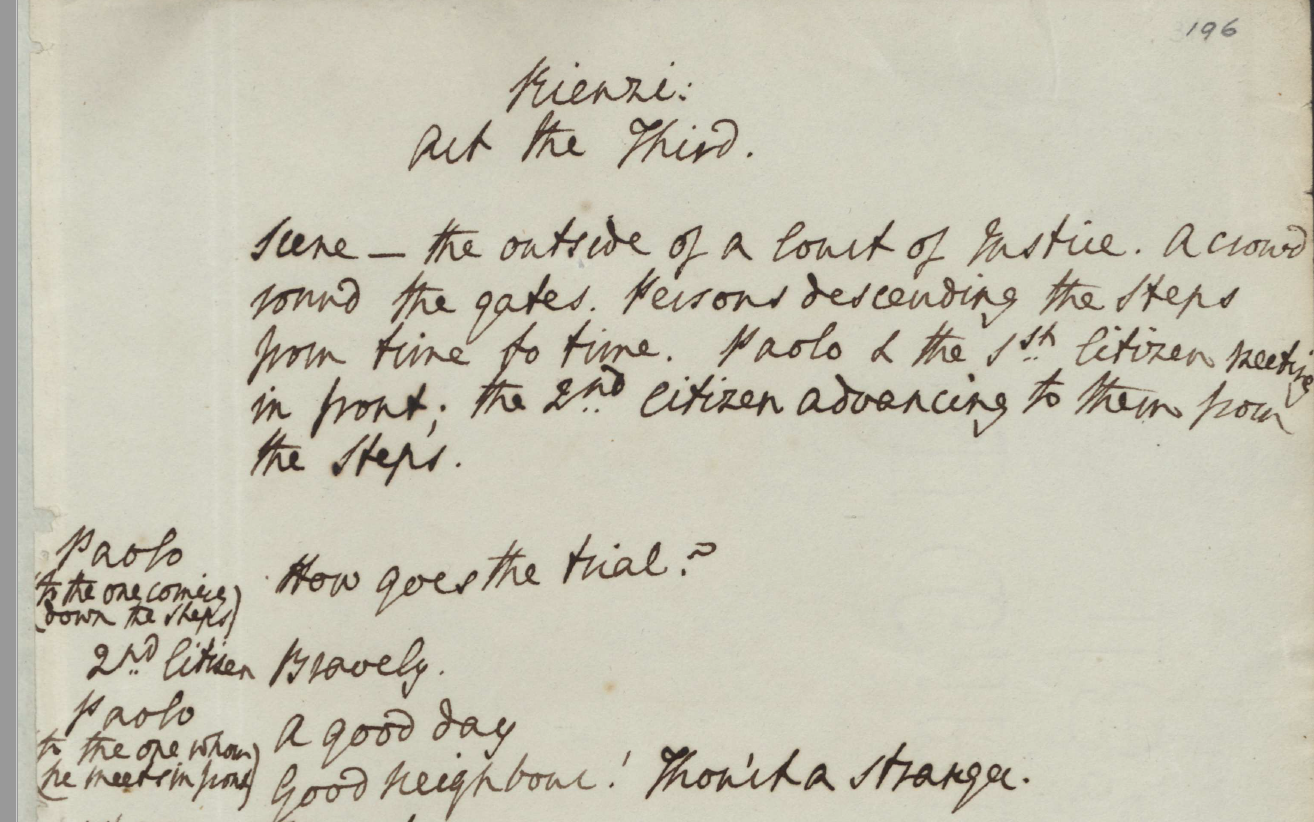 196
Rienzi:
Act the Third.
Scene — the outside of a Court of Justice. A crowd
round the gates. Persons descending the steps
from time to time. Paolo & the 1st Citizen meeting
in front; the 2nd Citizen advancing to them from
the steps.
Paolo
(to the one coming
down the steps)
How goes the trial?
2nd Citizen Bravely.
Paolo
(to the one whom
he meets in front)
A good day
Good neighbour! Thou'rt a stranger.